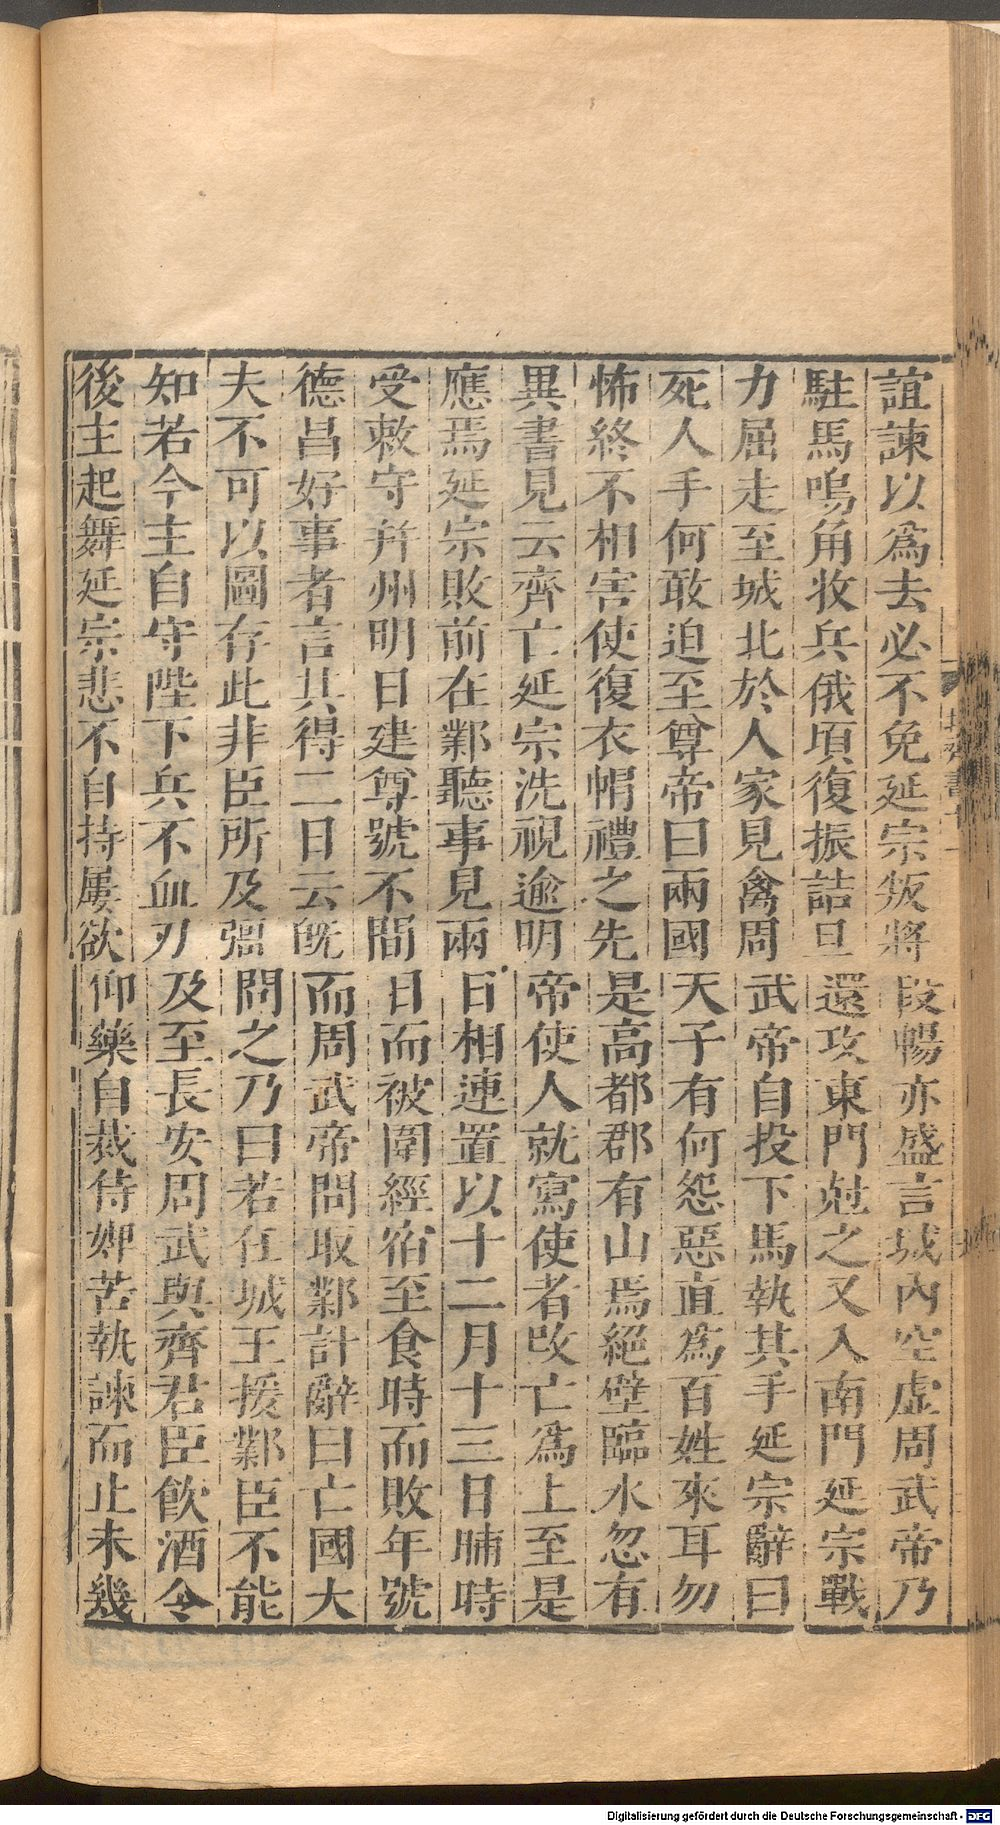 誼諫以爲去必不免延宗叛將段暢亦盛言城內空虛周武帝乃
駐馬鳴角收兵俄頃復振詰旦還攻東門尅之又入南門延宗戰
力屈走至城北於人家見禽周武帝自投下馬執其手延宗辭曰
死人手何敢迫至尊帝曰兩國天子有何怨惡直爲百姓來耳勿
怖終不相害使復衣帽禮之先是高都郡有山焉絕壁臨水忽有
異書見云齊亡延宗洗視逾明帝使人就寫使者改亡爲上至是
應焉延宗敗前在鄴聽事見兩日相連置以十二月十三日晡時
受敕守并州明日建尊號不間日而被圍經宿至食時而敗年號
德昌好事者言其得二日云旣而周武帝問取鄴計辭曰亡國大
夫不可以圖存此非臣所及彊問之乃曰若任城王援鄴臣不能
知若今主自守陛下兵不血刃及至長安周武與齊君臣飮酒令
後主起舞延宗悲不自持屢欲仰藥自裁侍婢苦執諫而止未幾
Digitalisierung gefördert durch die Deutsche Forschungsgemeinschaft - DFG